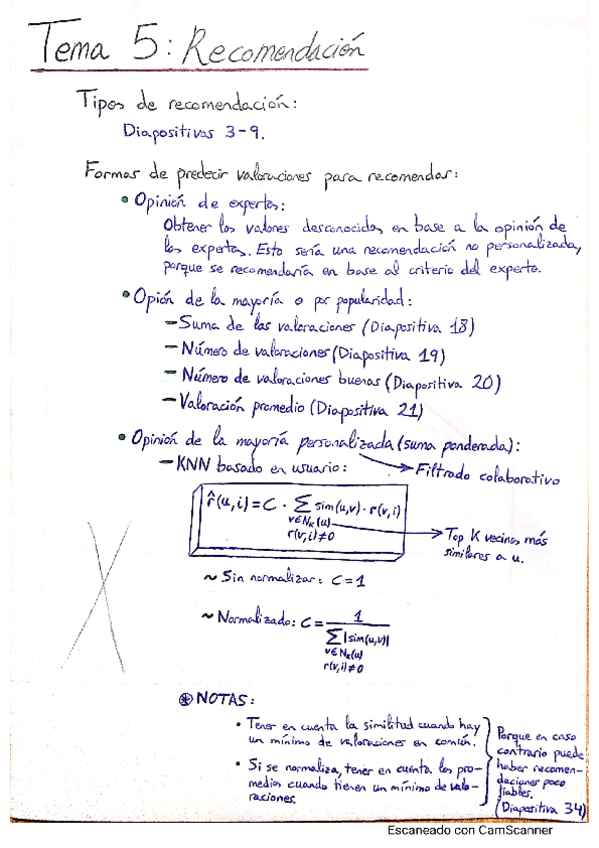 Tema 5: Recomendación
Tipos de recomendación:
Diapositivas 3-9.
Formas de predecir valoraciones para recomendar:
• Opinión de expertos:
Obtener los valores desconocidos en base a la opinión de
los expertos. Esto sería una recomendación no personalizada,
porque se recomendaría en base al criterio del experto.
• Opión de la mayoría o por popularidad:
- Suma de las valoraciones (Diapositiva 18)
- Número de valoraciones (Diapositiva 19)
- Número de valoraciones buenas (Diapositiva 20)
- Valoración promedio (Diapositiva 21)
• Opinión de la mayoría personalizada (suma ponderada):
- KNN basado en usuario: → Filtrado colaborativo
r̂(u,i) = C · ∑ sim(u,v) · r(v,i)
v∈Nₖ(u)
r(v,i)≠0
→ Top K vecinos más
similares a u.
~ Sin normalizar: C=1
~ Normalizado: C = 1
∑ |sim(u,v)|
v∈Nₖ(u)
r(v,i)≠0
⊛ NOTAS:
• Tener en cuenta la similitud cuando hay
un mínimo de valoraciones en común.
• Si se normaliza, tener en cuenta los pro-
medios cuando tienen un mínimo de valo-
raciones.
Porque en caso
contrario puede
haber recomen-
daciones poco
fiables.
(Diapositiva 34)
Escaneado con CamScanner